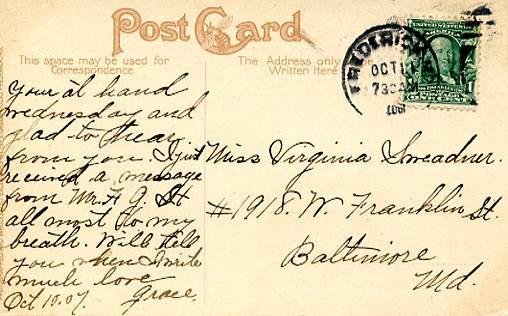 Post Card
This space may be used for
Correspondence
The Address only
Written Here
FREDERICK
OCT 11
730AM
1907
AMERICA
1
Your at hand
wednesday and
glad to hear
from you. I just
received a message
from Mr. H. G. St
all most to my
breath. Will tell
you when I write
much love
Oct 10.07. Grace.
Miss Virginia Smeadner.
#1918. W. Franklin St.
Baltimore
Md.